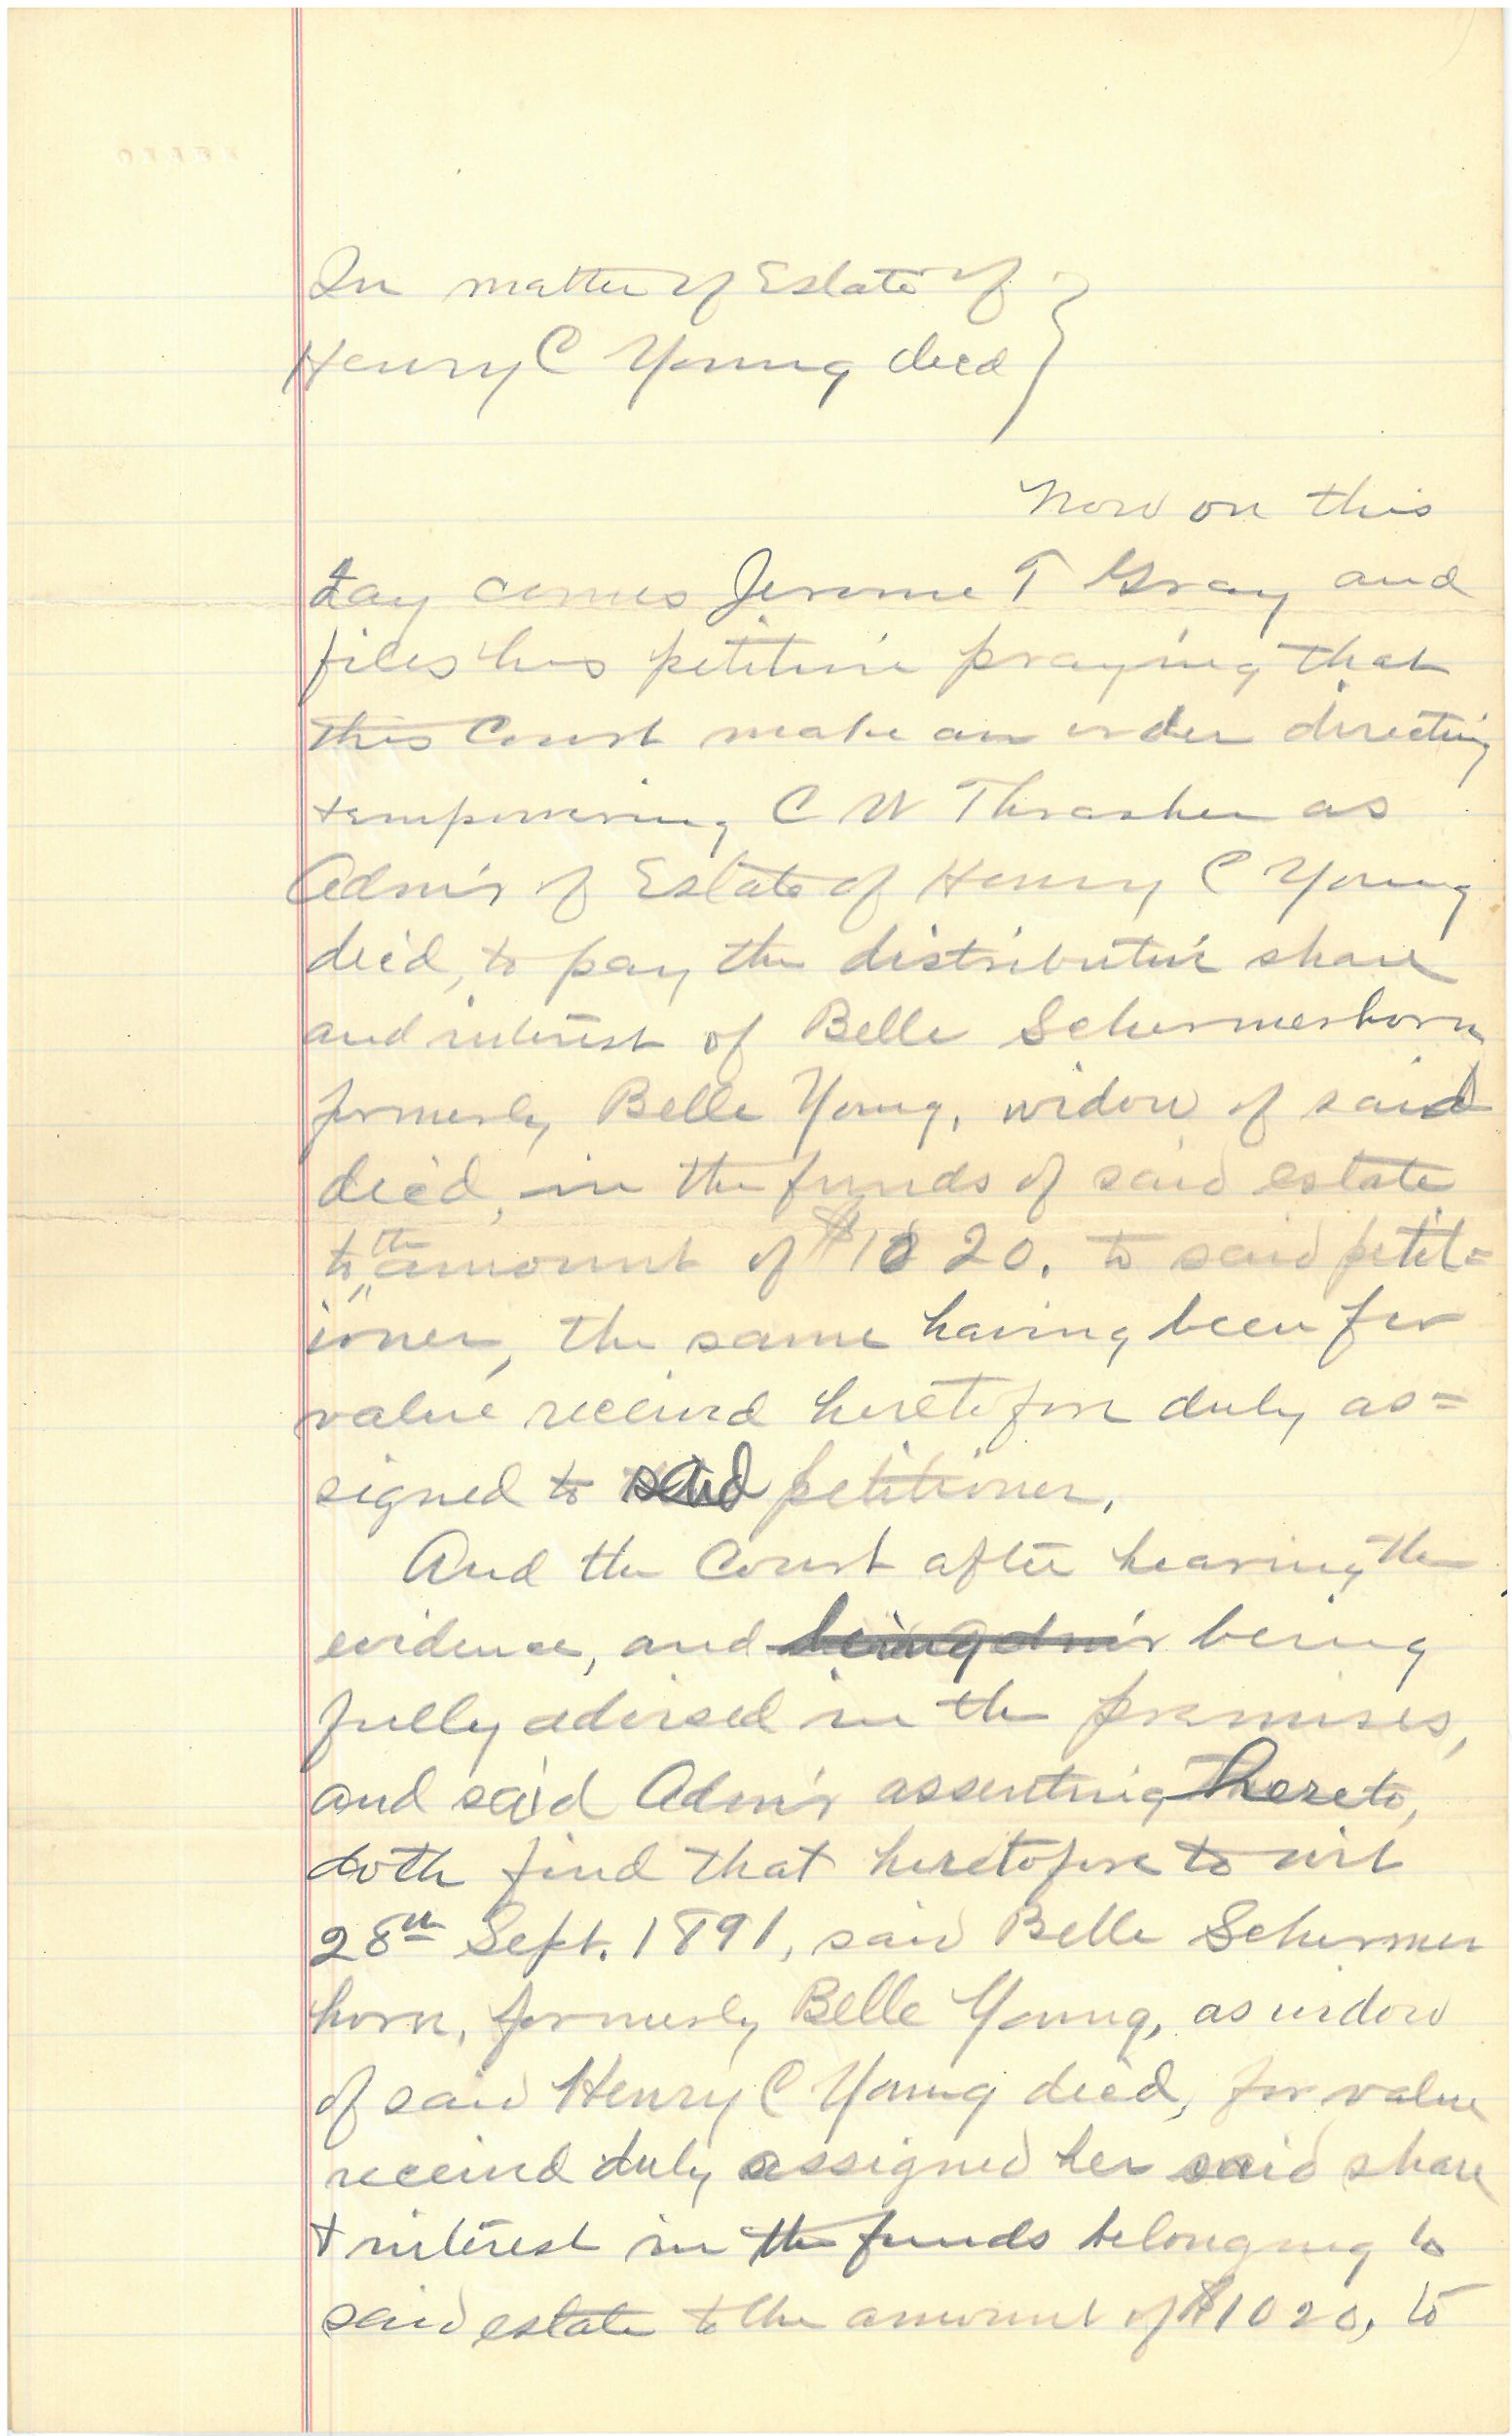 In matter of Estate of }
Henry C Young dec'd }
Now on this
day comes Jerome T Gray and
files his petition praying that
this Court make an order directing
+ empowering C W Thrasher as
Adm'r of Estate of Henry C Young
dec'd, to pay the distributive share
and interest of Belle Schermerhorn
formerly Belle Young, widow of said
dec'd, in the funds of said estate
to the amount of $1020. to said petit=
ioner, the same having been for
value received heretofore duly as=
signed to said petitioner.
And the Court after hearing the
evidence, and being adm'r being
fully advised in the premises,
and said Adm'r assenting hereto,
doth find that heretofore to wit
28th Sept. 1891, said Belle Schermer
horn, formerly Belle Young, as widow
of said Henry C Young dec'd, for value
received duly assigned her said share
+ interest in the funds belonging to
said estate to the amount of $1020, to